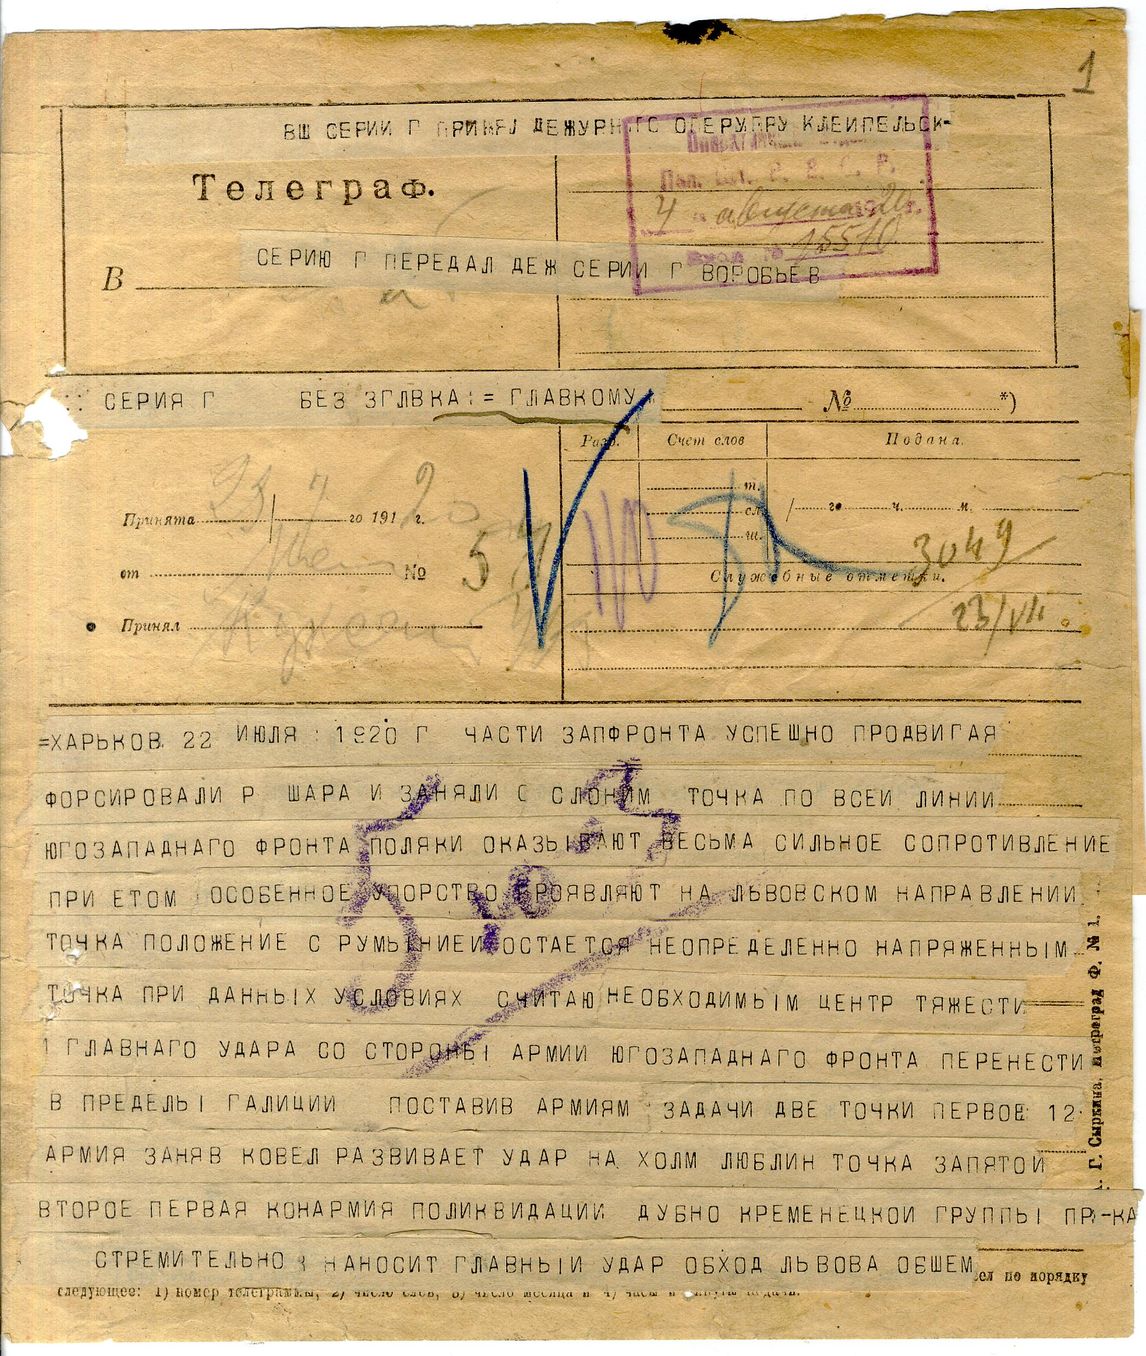 1
ВШ СЕРИИ Г ПРИНЯЛ ДЕЖУРНГО ОПЕРУПРУ КЛЕИПЕЛЬСК-
Телеграф.
4 августа 20 г.
15510
В
СЕРИЮ Г ПЕРЕДАЛ ДЕЖ СЕРИИ Г ВОРОБЬЕВ
СЕРИЯ Г БЕЗ ЗГЛВКА := ГЛАВКОМУ
№ *)
Разр. Счет слов Подана.
Принята 23/7 го 1920 г.
т.
сл.
ш.
/ го ч. м.
от № 57
Служебные отметки.
3049
23/VII
Принял
=ХАРЬКОВ 22 ИЮЛЯ 1920 Г ЧАСТИ ЗАПФРОНТА УСПЕШНО ПРОДВИГАЯ
ФОРСИРОВАЛИ Р ШАРА И ЗАНЯЛИ С СЛОНИМ ТОЧКА ПО ВСЕИ ЛИНИИ
ЮГОЗАПАДНАГО ФРОНТА ПОЛЯКИ ОКАЗЫВАЮТ ВЕСЬМА СИЛЬНОЕ СОПРОТИВЛЕНИЕ
ПРИ ЕТОМ ОСОБЕННОЕ УПОРСТВО ПРОЯВЛЯЮТ НА ЛЬВОВСКОМ НАПРАВЛЕНИИ
ТОЧКА ПОЛОЖЕНИЕ С РУМЫНИЕИ ОСТАЕТСЯ НЕОПРЕДЕЛЕННО НАПРЯЖЕННЫМ
ТОЧКА ПРИ ДАННЫХ УСЛОВИЯХ СЧИТАЮ НЕОБХОДИМЫМ ЦЕНТР ТЯЖЕСТИ
ГЛАВНАГО УДАРА СО СТОРОНЫ АРМИИ ЮГОЗАПАДНАГО ФРОНТА ПЕРЕНЕСТИ
В ПРЕДЕЛЫ ГАЛИЦИИ ПОСТАВИВ АРМИЯМ ЗАДАЧИ ДВЕ ТОЧКИ ПЕРВОЕ 12
АРМИЯ ЗАНЯВ КОВЕЛ РАЗВИВАЕТ УДАР НА ХОЛМ ЛЮБЛИН ТОЧКА ЗАПЯТОИ
ВТОРОЕ ПЕРВАЯ КОНАРМИЯ ПОЛИКВИДАЦИИ ДУБНО КРЕМЕНЕЦКОИ ГРУППЫ ПР-КА
СТРЕМИТЕЛЬНО НАНОСИТ ГЛАВНЫИ УДАР ОБХОД ЛЬВОВА ОБШЕМ
по порядку
следующее: 1) номер телеграммы, 2) число слов, 3) число месяца и 4) часы и минуты подачи.
Г. Сыркина, Петроград Ф. № 1.